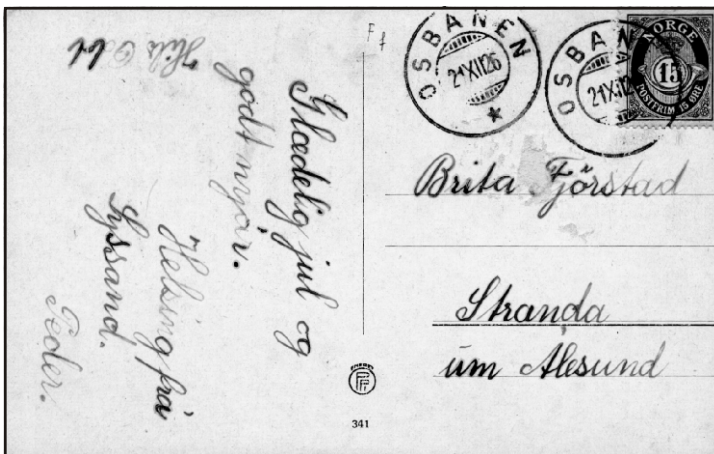 Glædelig jul og
godt nyår.
Helsing frå
Lyssand.
Peder.
Hils
F f
OSBANEN
21XII26
OSBAN
21XII2
NORGE
15
POSTFRIM 15 ØRE
Brita Fjörstad
Stranda
um Ålesund
341